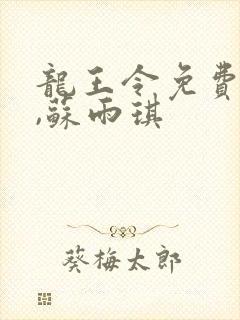 龍王令免費
,蘇雨琪
葵梅太郎